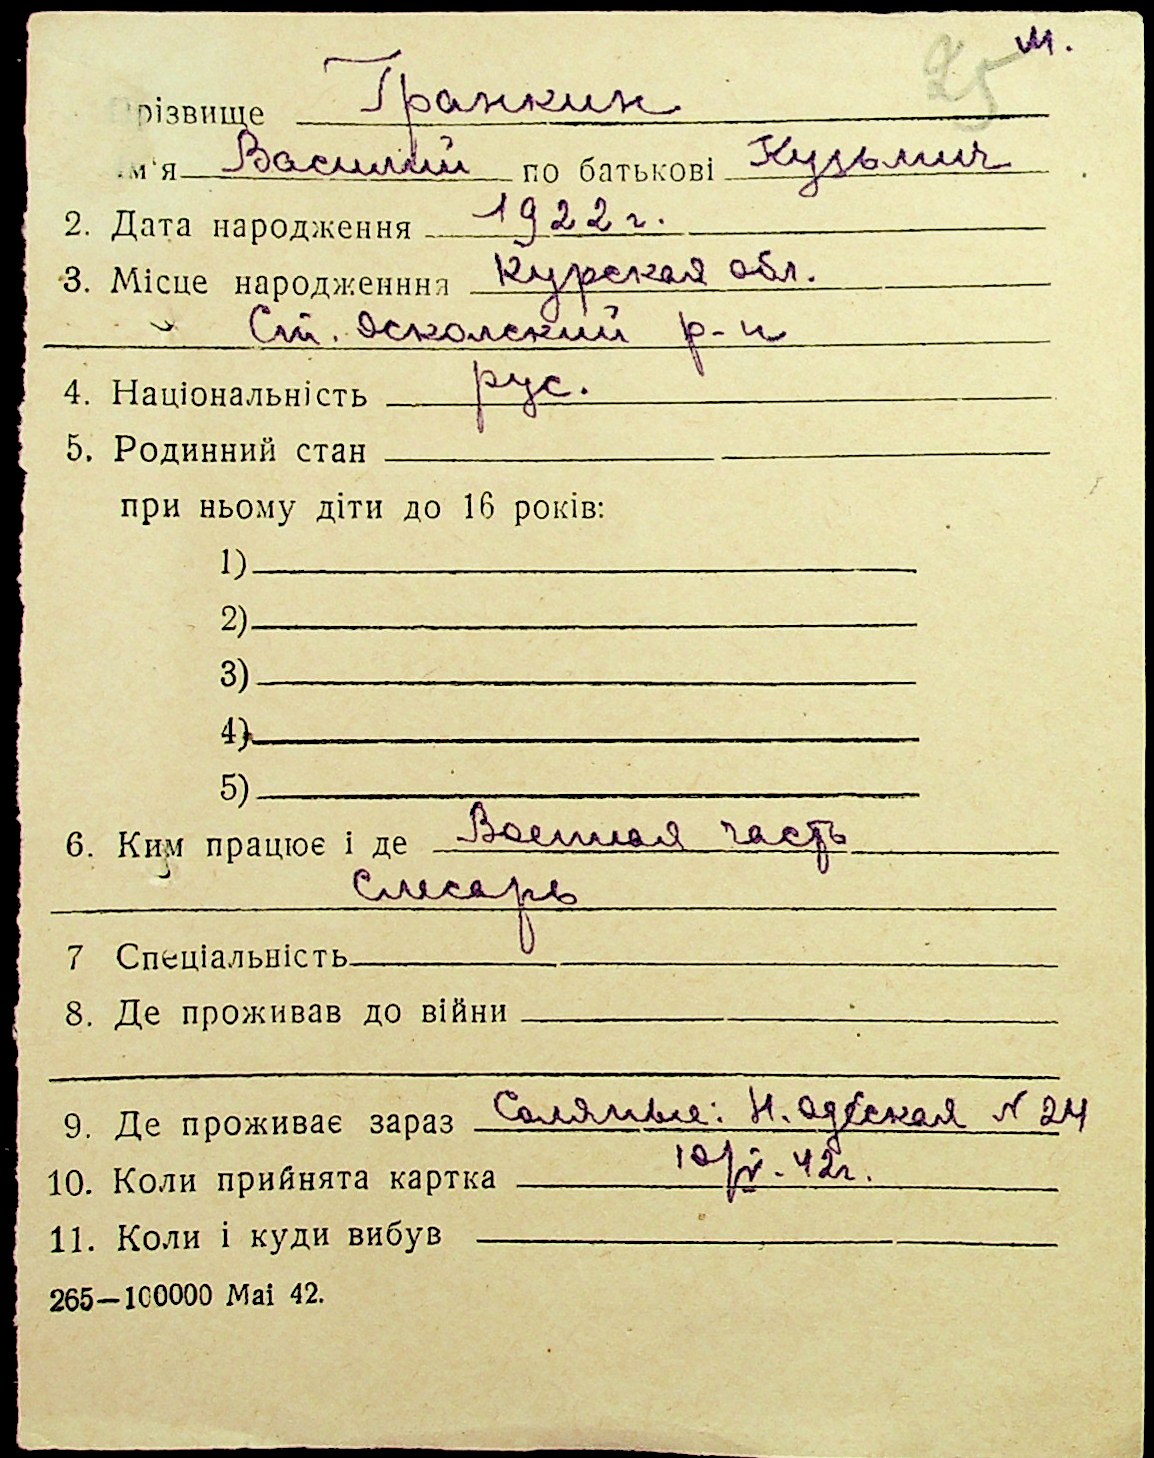 25 м.
Прізвище Гранкин
Ім'я Василий по батькові Кузьмич
2. Дата народження 1922 г.
3. Місце народженння Курская обл.
Ст. Осколский р-н
4. Національність рус.
5. Родинний стан
при ньому діти до 16 років:
1)
2)
3)
4)
5)
6. Ким працює і де Военная часть
Слесарь
7 Спеціальність
8. Де проживав до війни
9. Де проживає зараз Соляные: Н. Одеская № 24
10. Коли прийнята картка 10/V-42г.
11. Коли і куди вибув
265—100000 Маі 42.